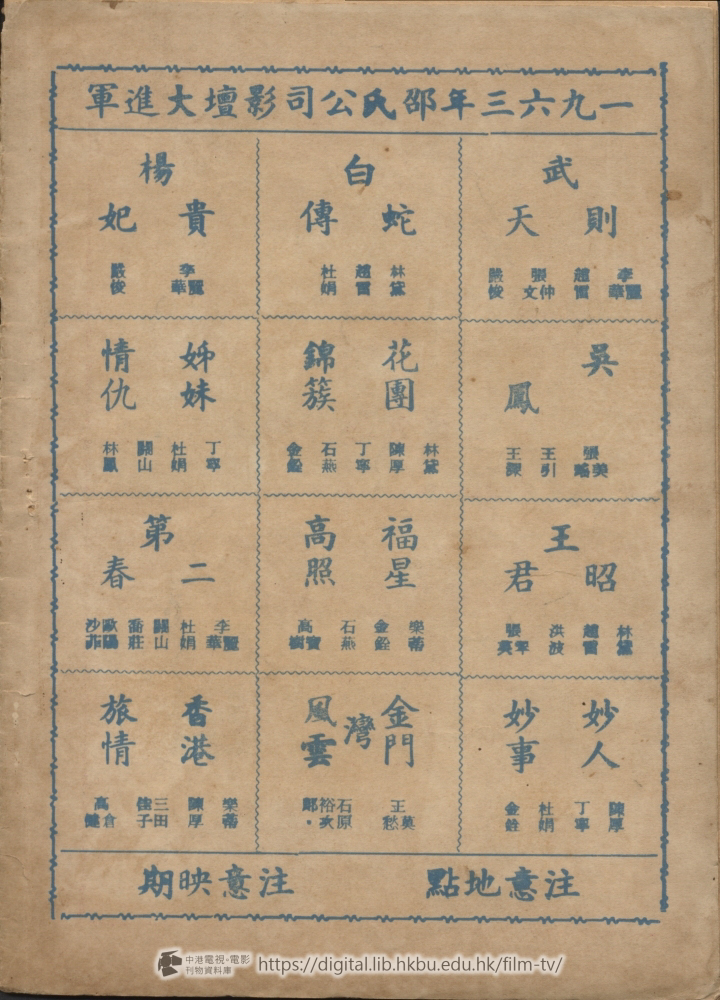 一九六三年邵氏公司影壇大進軍
武則天
李麗華 趙雷 張仲文 嚴俊
白蛇傳
林黛 趙雷 杜娟
楊貴妃
李麗華 嚴俊
吳鳳
張美瑤 王引 王
花團錦簇
林黛 陳厚 丁寧 石燕 金銓
姊妹情仇
丁寧 杜娟 關山 林鳳
王昭君
林黛 趙雷 洪波 張
福星高照
樂蒂 金銓 石燕 高寶樹
第二春
李麗華 杜娟 關山 喬莊 歐陽沙菲
妙人妙事
陳厚 丁寧 杜娟 金銓
金門灣風雲
王莫愁 石原裕次郎。
香港旅情
樂蒂 陳厚 三田佳子 高倉健
注意地點
注意映期
中港電視·電影
刊物資料庫
https://digital.lib.hkbu.edu.hk/film-tv/